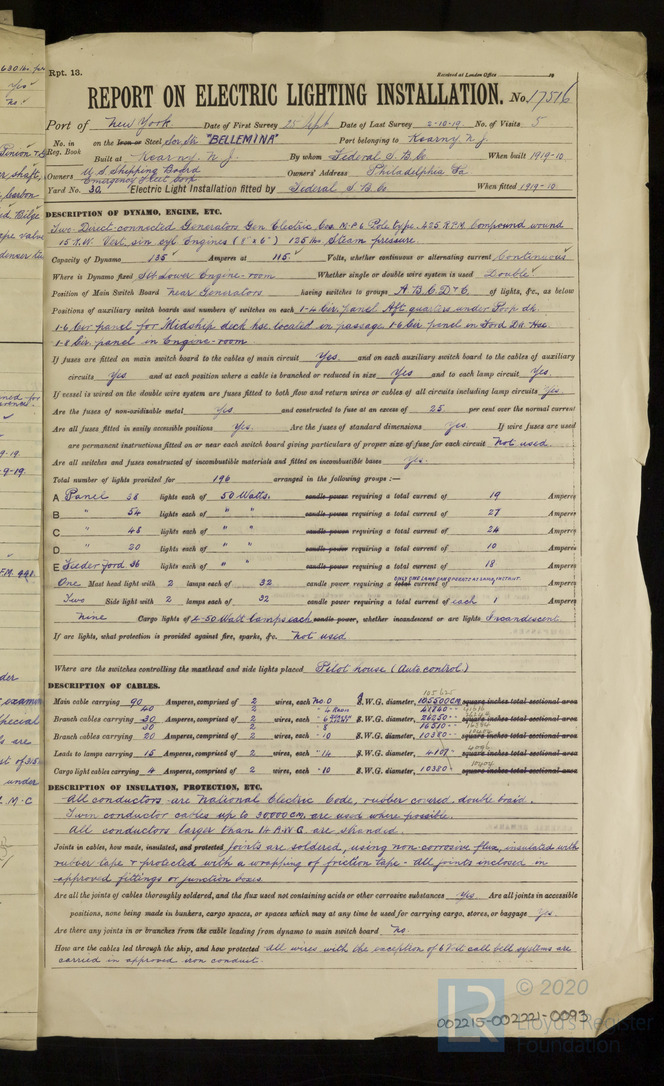 Rpt. 13.
Received at London Office 19
REPORT ON ELECTRIC LIGHTING INSTALLATION. No. 17516
Port of New York Date of First Survey 25 Sept Date of Last Survey 2-10-19 No. of Visits 5
No. in Reg. Book on the Iron or Steel "BELLEMINA" Port belonging to Kearny N.J.
Built at Kearny N.J. By whom Federal S.B.Co When built 1919-10
Owners U.S. Shipping Board Emergency Fleet Corp. Owners' Address Philadelphia Pa
Yard No. 30. Electric Light Installation fitted by Federal S.B.Co When fitted 1919-10
DESCRIPTION OF DYNAMO, ENGINE, ETC.
Two Direct-connected Generators Gen Electric Cos M.P.6 Pole type. 425 R.P.M. Compound wound
15 K.W. Vert. sin cyl Engines (8" x 6") 125 lbs Steam pressure.
Capacity of Dynamo 135 Amperes at 115 Volts, whether continuous or alternating current Continuous
Where is Dynamo fixed Stb Lower Engine-room Whether single or double wire system is used Double
Position of Main Switch Board near Generators having switches to groups A B C D & E of lights, &c., as below
Positions of auxiliary switch boards and numbers of switches on each 1-4 Cir. panel Aft quarters under Poop dk.
1-6 Cir panel for Midship deck hse. located in passage. 1-6 Cir. panel in Ford Dk Hse.
1-8 Cir. panel in Engine-room
If fuses are fitted on main switch board to the cables of main circuit Yes. and on each auxiliary switch board to the cables of auxiliary
circuits Yes and at each position where a cable is branched or reduced in size Yes and to each lamp circuit Yes.
If vessel is wired on the double wire system are fuses fitted to both flow and return wires or cables of all circuits including lamp circuits Yes.
Are the fuses of non-oxidizable metal Yes and constructed to fuse at an excess of 25 per cent over the normal current
Are all fuses fitted in easily accessible positions Yes. Are the fuses of standard dimensions Yes. If wire fuses are used
are permanent instructions fitted on or near each switch board giving particulars of proper size of fuse for each circuit Not used
Are all switches and fuses constructed of incombustible materials and fitted on incombustible bases Yes.
Total number of lights provided for 196 arranged in the following groups :—
A Panel 38 lights each of 50 Watts. candle power requiring a total current of 19 Amperes
B " 54 lights each of " " candle power requiring a total current of 27 Amperes
C " 48 lights each of " " candle power requiring a total current of 24 Amperes
D " 20 lights each of " " candle power requiring a total current of 10 Amperes
E Feeder Ford 36 lights each of " " candle power requiring a total current of 18 Amperes
One Mast head light with 2 lamps each of 32 candle power requiring a total current of ONLY ONE LAMP CAN OPERATE AT SAME INSTANT Amperes
Two Side light with 2 lamps each of 32 candle power requiring a total current of each 1 Amperes
Nine Cargo lights of 2-50 Watt Lamps each candle power, whether incandescent or arc lights Incandescent
If arc lights, what protection is provided against fire, sparks, &c. Not used
Where are the switches controlling the masthead and side lights placed Pilot house (Auto control)
DESCRIPTION OF CABLES.
Main cable carrying 90 Amperes, comprised of 2 wires, each No. 0 S.W.G. diameter, 105500 CM square inches total sectional area
Branch cables carrying 30 Amperes, comprised of 2 wires, each 6 S.W.G. diameter, 26250 square inches total sectional area
Branch cables carrying 20 Amperes, comprised of 2 wires, each 10 S.W.G. diameter, 10380 square inches total sectional area
Leads to lamps carrying 15 Amperes, comprised of 2 wires, each 14 S.W.G. diameter, 4107 square inches total sectional area
Cargo light cables carrying 4 Amperes, comprised of 2 wires, each 10 S.W.G. diameter, 10380 square inches total sectional area
DESCRIPTION OF INSULATION, PROTECTION, ETC.
All conductors are National Electric Code, rubber covered double braid.
Twin conductor cables up to 30000 C.M. are used where possible.
All conductors larger than 14 A.W.G. are strandid.
Joints in cables, how made, insulated, and protected Joints are soldered, using non corrosive flux, insulated with
rubber tape & protected with a wrapping of friction tape - All joints inclosed in
approved fittings or junction boxes
Are all the joints of cables thoroughly soldered, and the flux used not containing acids or other corrosive substances Yes Are all joints in accessible
positions, none being made in bunkers, cargo spaces, or spaces which may at any time be used for carrying cargo, stores, or baggage Yes.
Are there any joints in or branches from the cable leading from dynamo to main switch board No.
How are the cables led through the ship, and how protected All wires with the exception of 6 Volt call bell systems are
carried in approved iron conduit.
© 2020
LR Lloyd's Register Foundation
002215-002221-0093